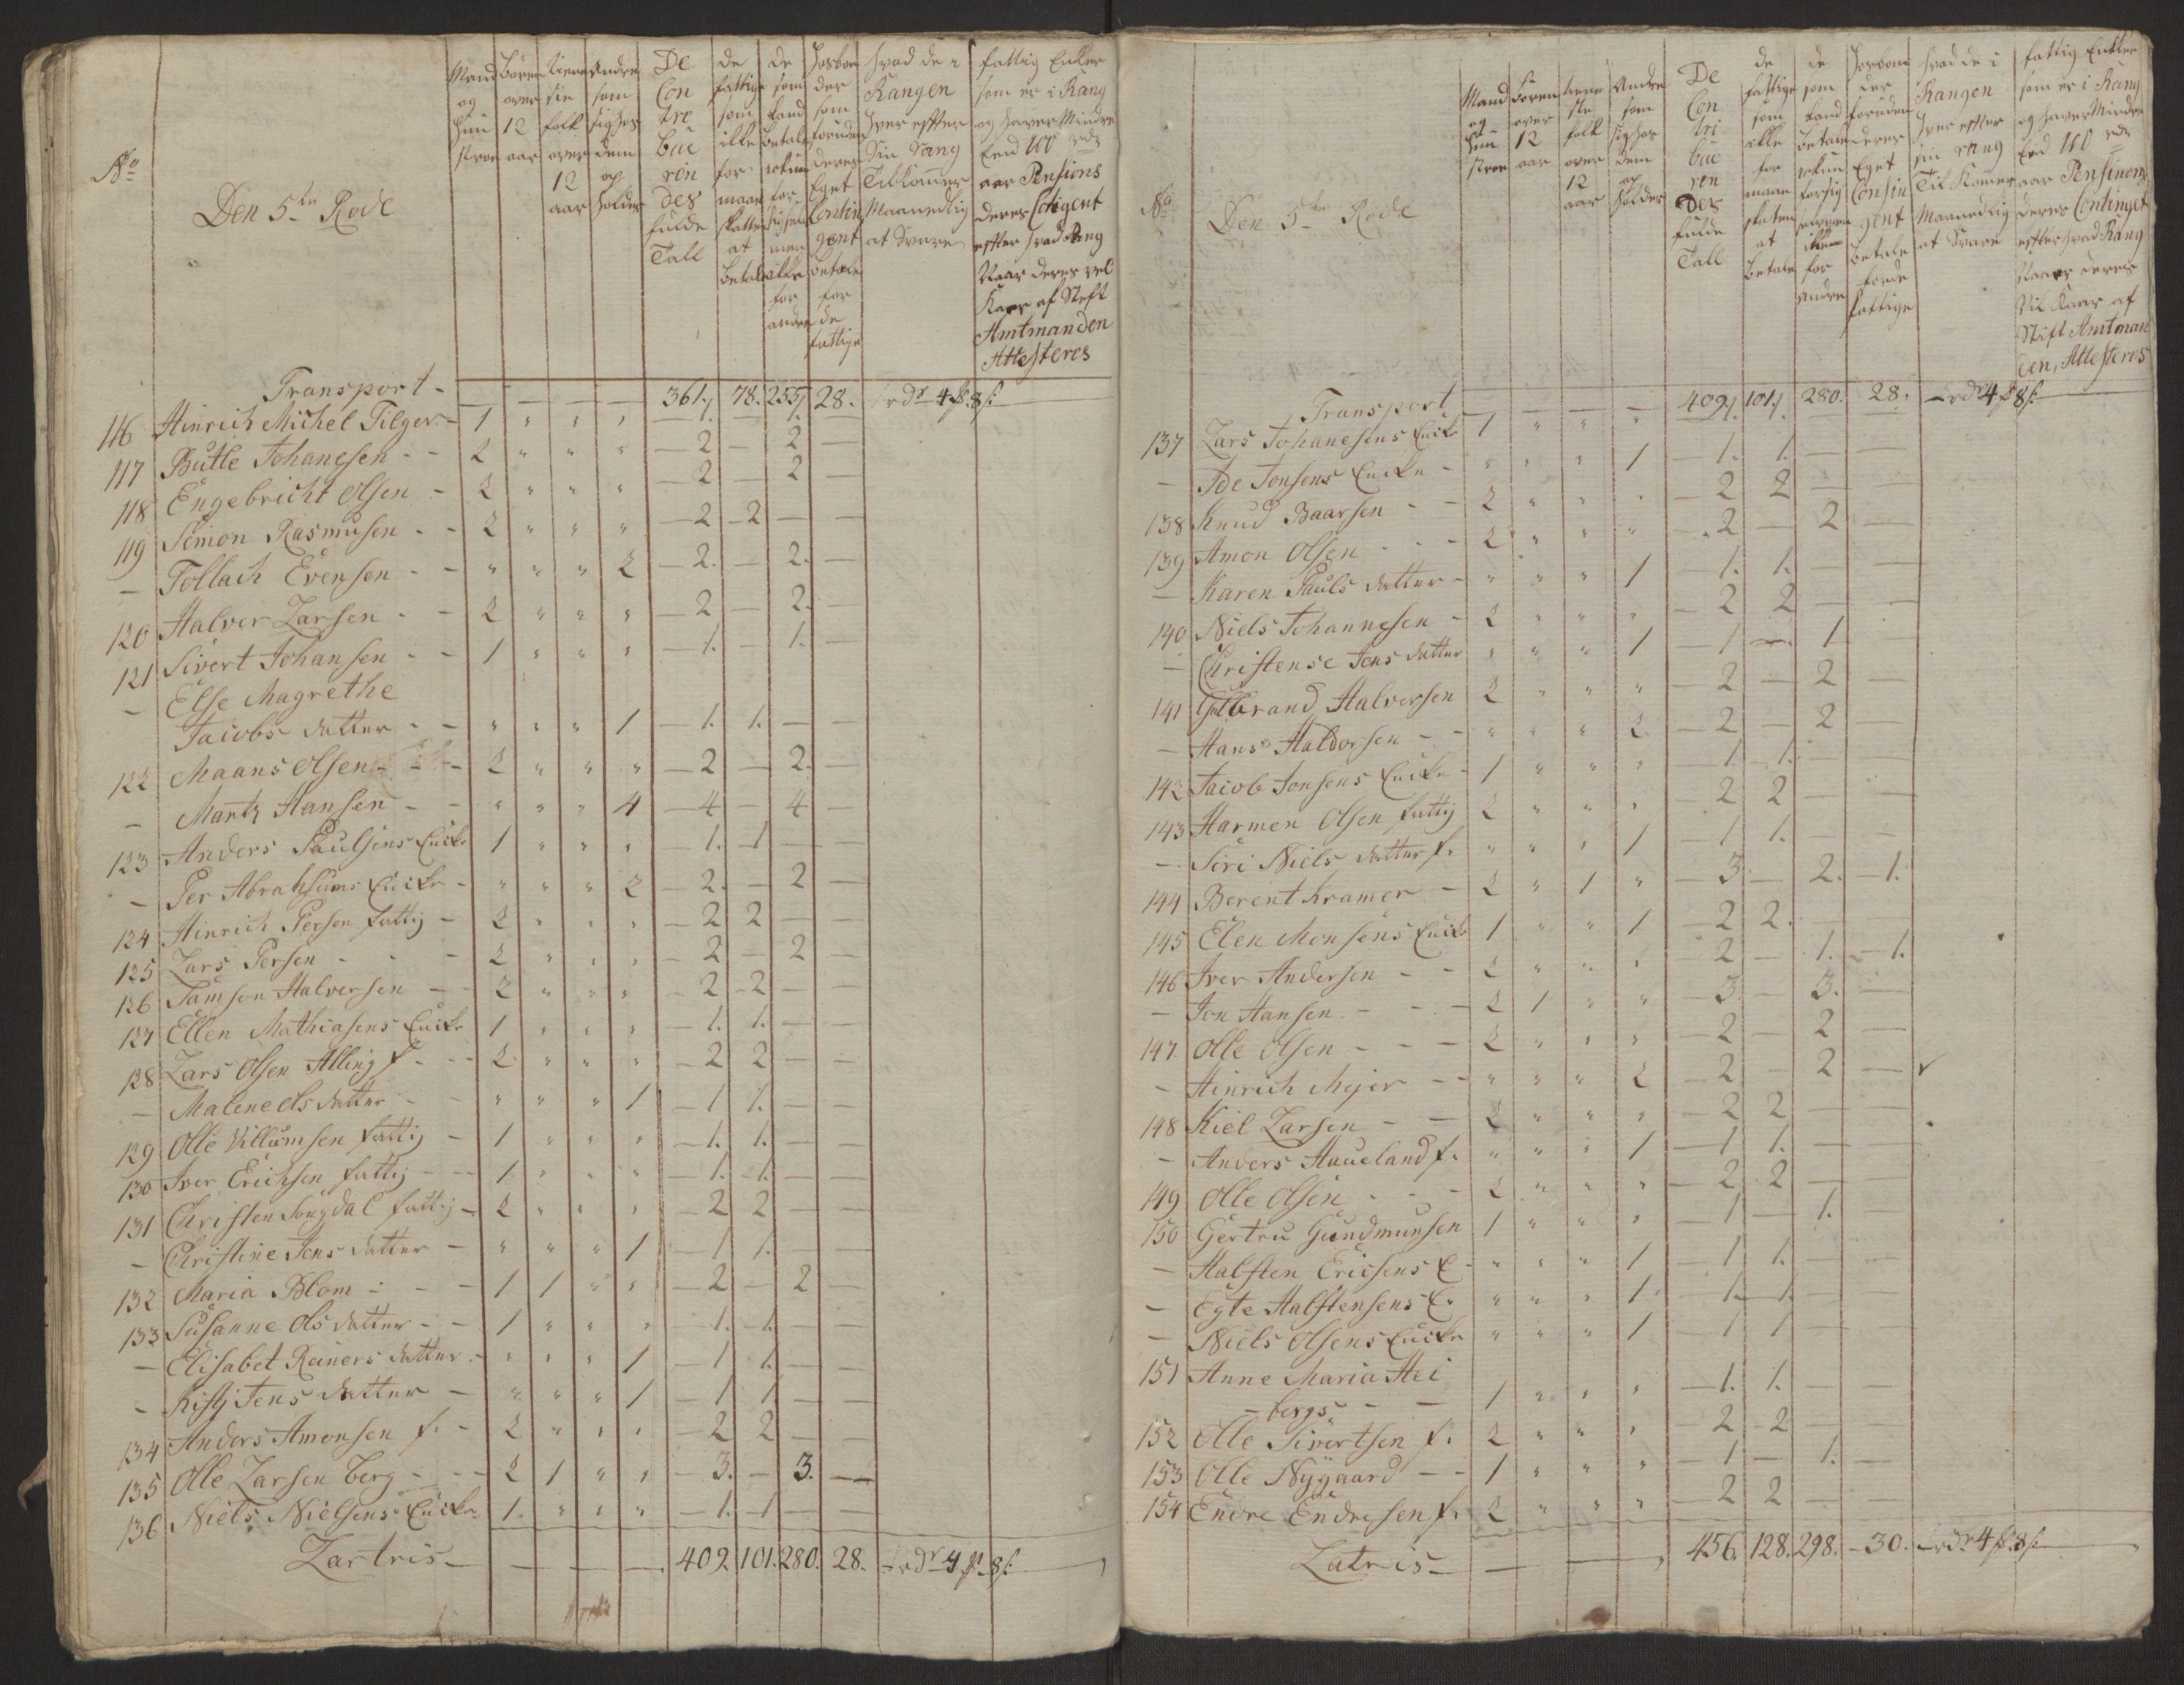 No
Den 5te Rode
Mand og Hustroe
Börn over 12 aar
tieneste folk over 12 aar
Andre som sig hos dem op holder
De Con tre bue ren des fulde Tall
de fattige som ikke for maar skatten at betale
de som kand betale men ikke for andre
som foruden deres Eget Contingent betale for de fattige
hvad de i Rangen hver efter Sin Rang Tilkommer Maanedlig at Svare
fattig Enker som er i Rang og haver Mindre End 100 rdr aar Pensions deres Contigent efter hvad Rang Naar deres vel Kaar af Steft Amtmanden Attesteres
Transport - — — — — 361. 78. 255. 28. rdr 4 ß 8
116 Hinrich Michel Tilger - 1 " " " — 1. — 1.
117 Butle Johanesen - - 2 " " " — 2 — 2 —
118 Engebricht Olsen - 2 " " " — 2 — 2 —
119 Simon Rasmusen - - 2 " " " — 2 - 2 — —
— Tollach Evensen - - " " " 2 — 2. — 2. —
120 Halver Larsen - - 2 " " " — 2 — 2. —
121 Sivert Johansen - - 1 " " " — 1. — 1. —
- Else Magrethe
Jacobs datter - - " " " 1 — 1. 1. — —
122 Maans Olsen - - 2 " " " — 2 — 2. —
— Mantz Hansen - - " " " 4 — 4 — 4 —
123 Anders Paulsens Encke 1 " " " — 1. - 1 — —
— Per Abrahsums Encke - " " " 2 — 2. — 2 —
124 Hinrich Persen fattig - 2 " " " — 2 2 — —
125 Lars Persen - - - 2 " " " — 2 — 2 —
126 Samson Halversen - - 2 " " " — 2 - 2 — —
127 Ellen Mathiasens Encke 1 " " " — 1. 1. — —
128 Lars Olsen Alling f. - - 2 " " " — 2 2 — —
— Malene Ols datter - - " " " 1 — 1 1. — —
129 Olle Villumsen fattig - 1 " " " — 1. 1. — —
130 Iver Erichsen fattig - - 1 " " " — 1. 1. — —
131 Christen Songdal fattig - 2 " " " — 2 2 — —
- Christine Jens datter - " " " 1 — 1 1. — —
132 Maria Blom - - - 1 1 " " — 2 — 2 —
133 Susanne Ols datter - - 1 " " " — 1. 1. — —
— Elisabet Reiners datter - " " " 1 — 1 1. — —
- Kisty Jens datter - " " " 1 — 1 1 — —
134 Anders Amonsen f. - 2 " " " — 2 2 — —
135 Olle Larsen berg - - - 2 1 " " — 3. — 3. —
136 Niels Nielsens Encke 1. " " " — 1. - 1 — —
Lartris - — — — — 409. 101. 280. 28. - rdr 4 ß 8
No
Den 5te Rode
Mand og Hustroe
Foren over 12 aar
tiene ste folk over 12 aar
Andre som sig hos dem op holder
De Con tri bue ren Des fulde Tall
de fattige som ikke for maar skaten at betale
de som kand betale ikke for Andre
foruden deres Eget Consin gent betale forde fattige
hvad de i Rangen hver efter sin rang Til Komer Maanedlig at Svare
fattig Enkler som er i Rang og haver Mindre End 100 rdr aar Pensinons deres Continget efter hvad Rang Naar deres Vil Kaar af Stift Amtman den, Attesteres
Transport — — — — 409. 101. 280. 28. - rdr 4 ß 8
137 Lars Johanesens Encke 1 " " " — 1. 1. — —
— Ade Jonsens Encke - " " " 1 — 1. 1. — —
138 Knud Baarsen - - 2 " " " — 2 2 — —
139 Amon Olsen - - - 2 " " " — 2 — 2 —
— Karen Pauls datter - " " " 1 — 1. 1. — —
140 Niels Johannesen - 2 " " " — 2 2 — —
— Christense Jens datter " " " 1 — 1 — 1
141 Gulbrand Halversen 2 " " " — 2 — 2 —
— Hans Haldorsen - - " " " 2 — 2 — 2 —
142 Jacob Jonsens Encke - 1 " " " — 1 1. — —
143 Harmen Olsen fattig 2 " " " — 2 2 — —
— Siri Niels datter f. " " " 1 — 1 1. — —
144 Berent Kramer - 2 " 1 " — 3 — 2. — 1.
145 Elen Monsens Encke 1 " " 1 — 2 2. —
146 Iver Andersen - - 2 " " " — 2 — 1. — 1.
- Jon Hansen - - - 2 1 " " — 3 — 3. —
147 Olle Olsen - - - 2 " " " — 2 — 2 —
- Hinrich Mejer - - " " " 2 — 2 — 2 —
148 Kiel Larsen - - 2 " " " — 2 2 — —
- Anders Haueland f. " " " 1 — 1 1. — —
149 Olle Olsen - - - 2 " " " — 2 2 — —
150 Gertru Gundmunsen 1 " " " — 1 — 1. —
— Halsten Ericsens E - " " " 1 — 1 1. — —
— Egte Halstensens E. " " " 1. — 1. 1. — —
— Niels Olsens Encke " " " 1 — 1 1 — —
151 Anne Maria Hei
- bergs - - 1 " " " — 1. 1. — —
152 Olle Sivertsen f. 2 " " " — 2 - 2 —
153 Olle Nygaard - - 1 " " " — 1 — 1. —
154 Endre Endresen f. 2 " " " — 2 2 —
Latris - — — 456. 128. 298. - 30. - rdr 4 ß 8